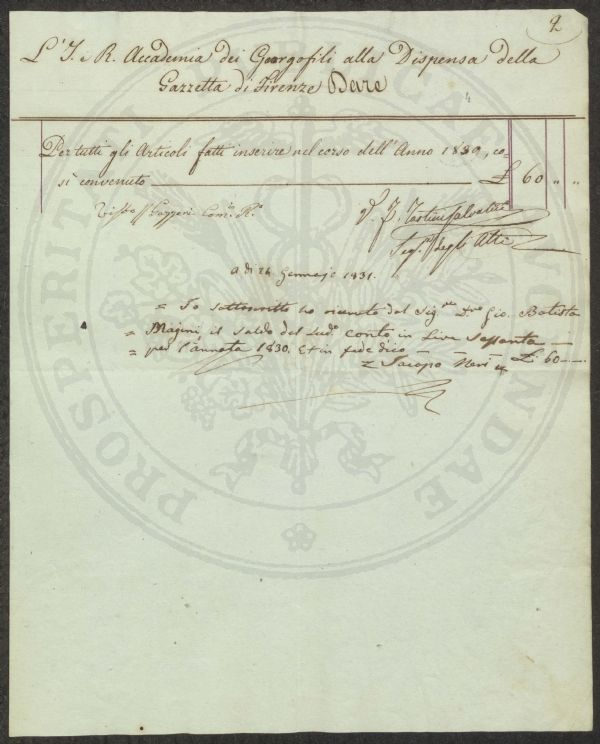 2
L'I. e R. Accademia dei Georgofili alla Dispensa della
Gazzetta di Firenze Deve
Per tutti gli Articoli fatti inserire nel corso dell'Anno 1830, co-
sì convenuto £ 60 " "
Visto Gazzeri
V. F. Tartini Salvatici
Seg.º degli Atti
A dì 26 Gennajo 1831.
= Io sottoscritto ho ricevuto dal Sig.re D.re Gio. Batista
= Magini il saldo del sud.º Conto in Lire Sessanta
= per l'annata 1830. Et in fede dico £: 60
= Jacopo Neri
PROSPERITATI PUBLICAE AUGENDAE